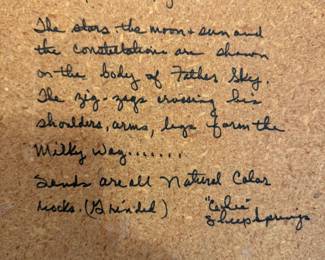 The stars-the moon + sun and
the constellations are shown
on-the body of Father Sky.
The zig-zags crossing his
shoulders, arms, legs form the
Milky Way.......
Sands are all Natural Color
rocks. (Grinded)
Sheep Springs